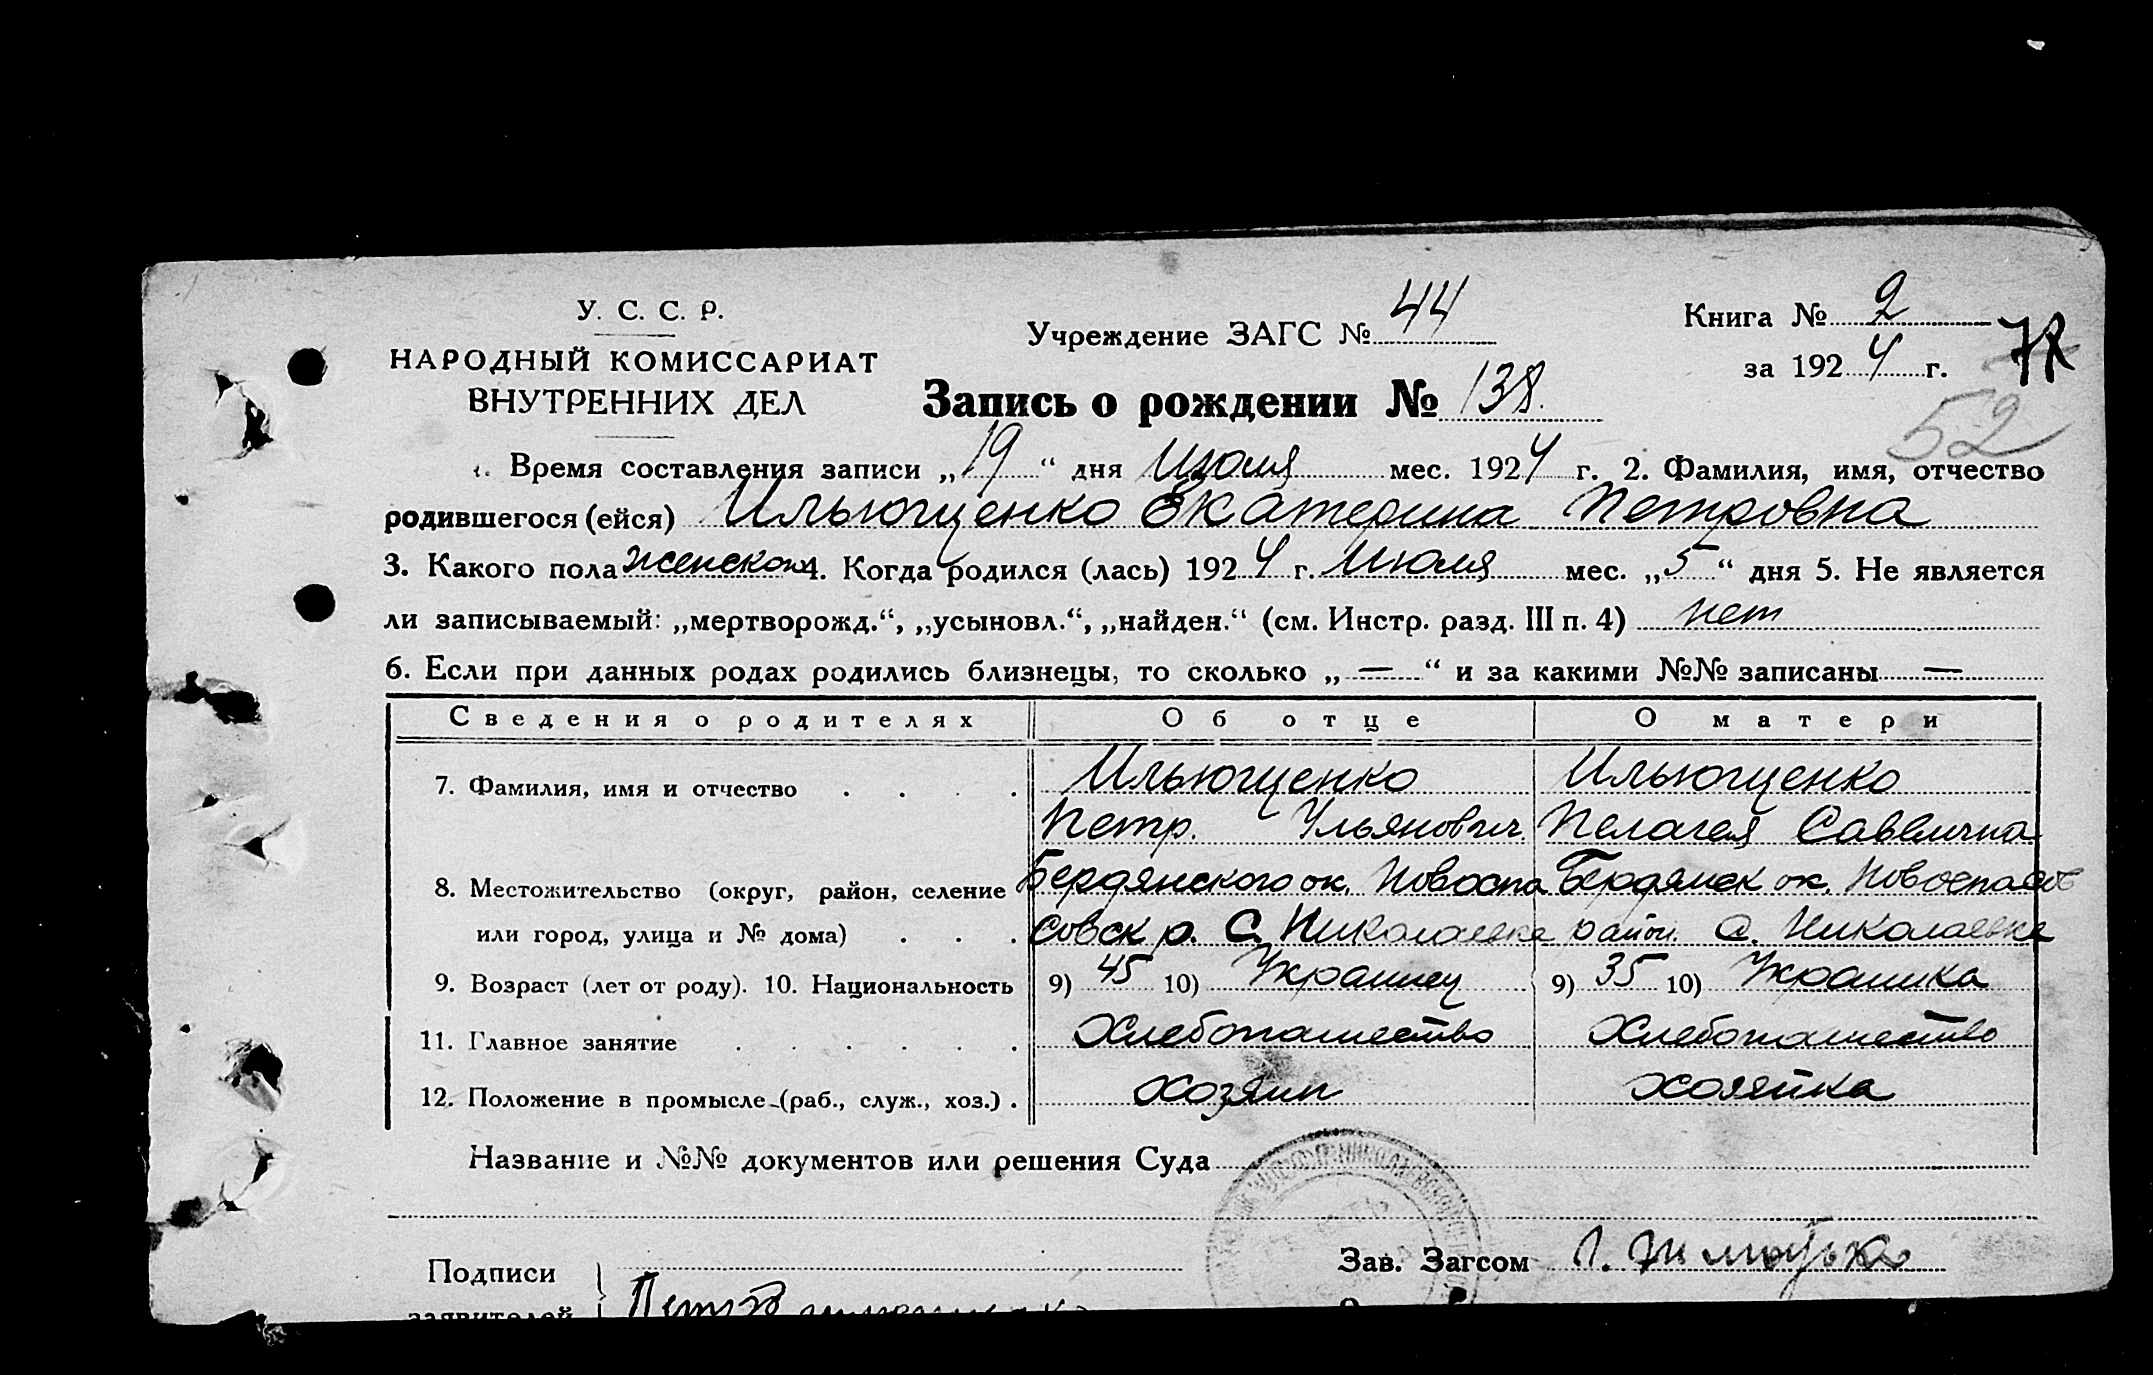 У. С. С. Р.
НАРОДНЫЙ КОМИССАРИАТ
ВНУТРЕННИХ ДЕЛ
Учреждение ЗАГС № 44
Книга № 2
за 1924 г.
52
Запись о рождении № 138.
1. Время составления записи „19“ дня Июля мес. 1924 г. 2. Фамилия, имя, отчество
родившегося (ейся) Ильющенко Екатерина Петровна
3. Какого пола женского 4. Когда родился (лась) 1924 г. Июля мес. „5“ дня 5. Не является
ли записываемый: „мертворожд.“, „усыновл.“, „найден.“ (см. Инстр. разд. III п. 4) нет
6. Если при данных родах родились близнецы, то сколько „—“ и за какими №№ записаны —
Сведения о родителях Об отце О матери
7. Фамилия, имя и отчество . . . . Ильющенко Ильющенко
Петр. Ульянович. Пелагея Саввична
8. Местожительство (округ, район, селение Бердянского ок. Новоспа Бердянск ок. Новоспасов
или город, улица и № дома) . . . совск р. С. Николаевка район. С. Николаевка
9. Возраст (лет от роду). 10. Национальность 9) 45 10) Украинец 9) 35 10) Украинка
11. Главное занятие . . . . . . Хлебопашество Хлебопашество
12. Положение в промысле (раб., служ., хоз.) . хозяин хозяйка
Название и №№ документов или решения Суда
Подписи
Зав. Загсом
заявителей